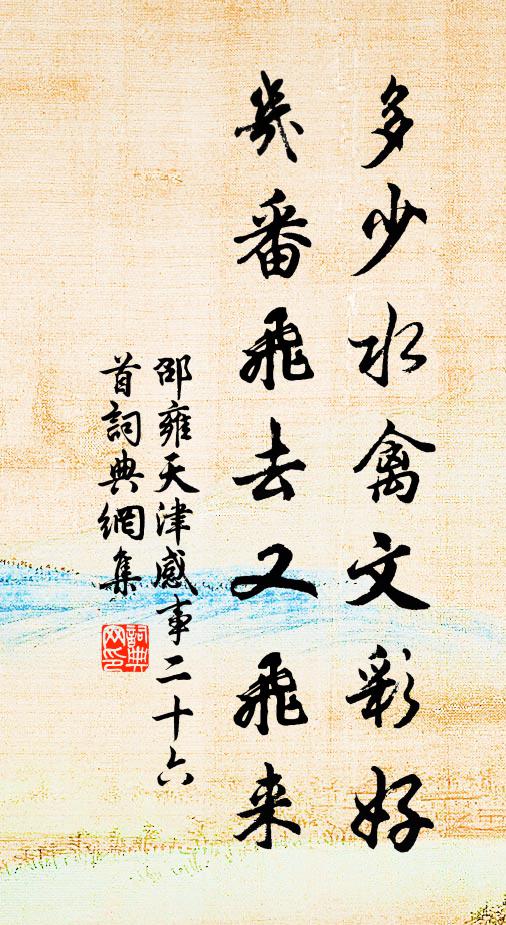 多少水禽文彩好
幾番飛去又飛来
邵雍天津感事二十六
首詞典網集
詞典网印